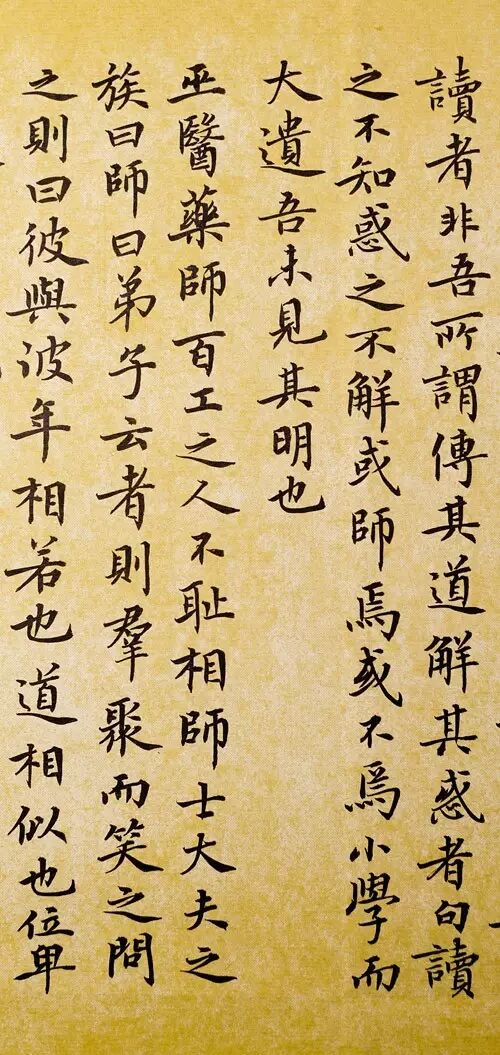 讀者非吾所謂傳其道解其惑者句讀
之不知惑之不解或師焉或不焉小學而
大遺吾未見其明也
巫醫藥師百工之人不耻相師士大夫之
族曰師曰弟子云者則羣聚而笑之問
之則曰彼與彼年相若也道相似也位卑